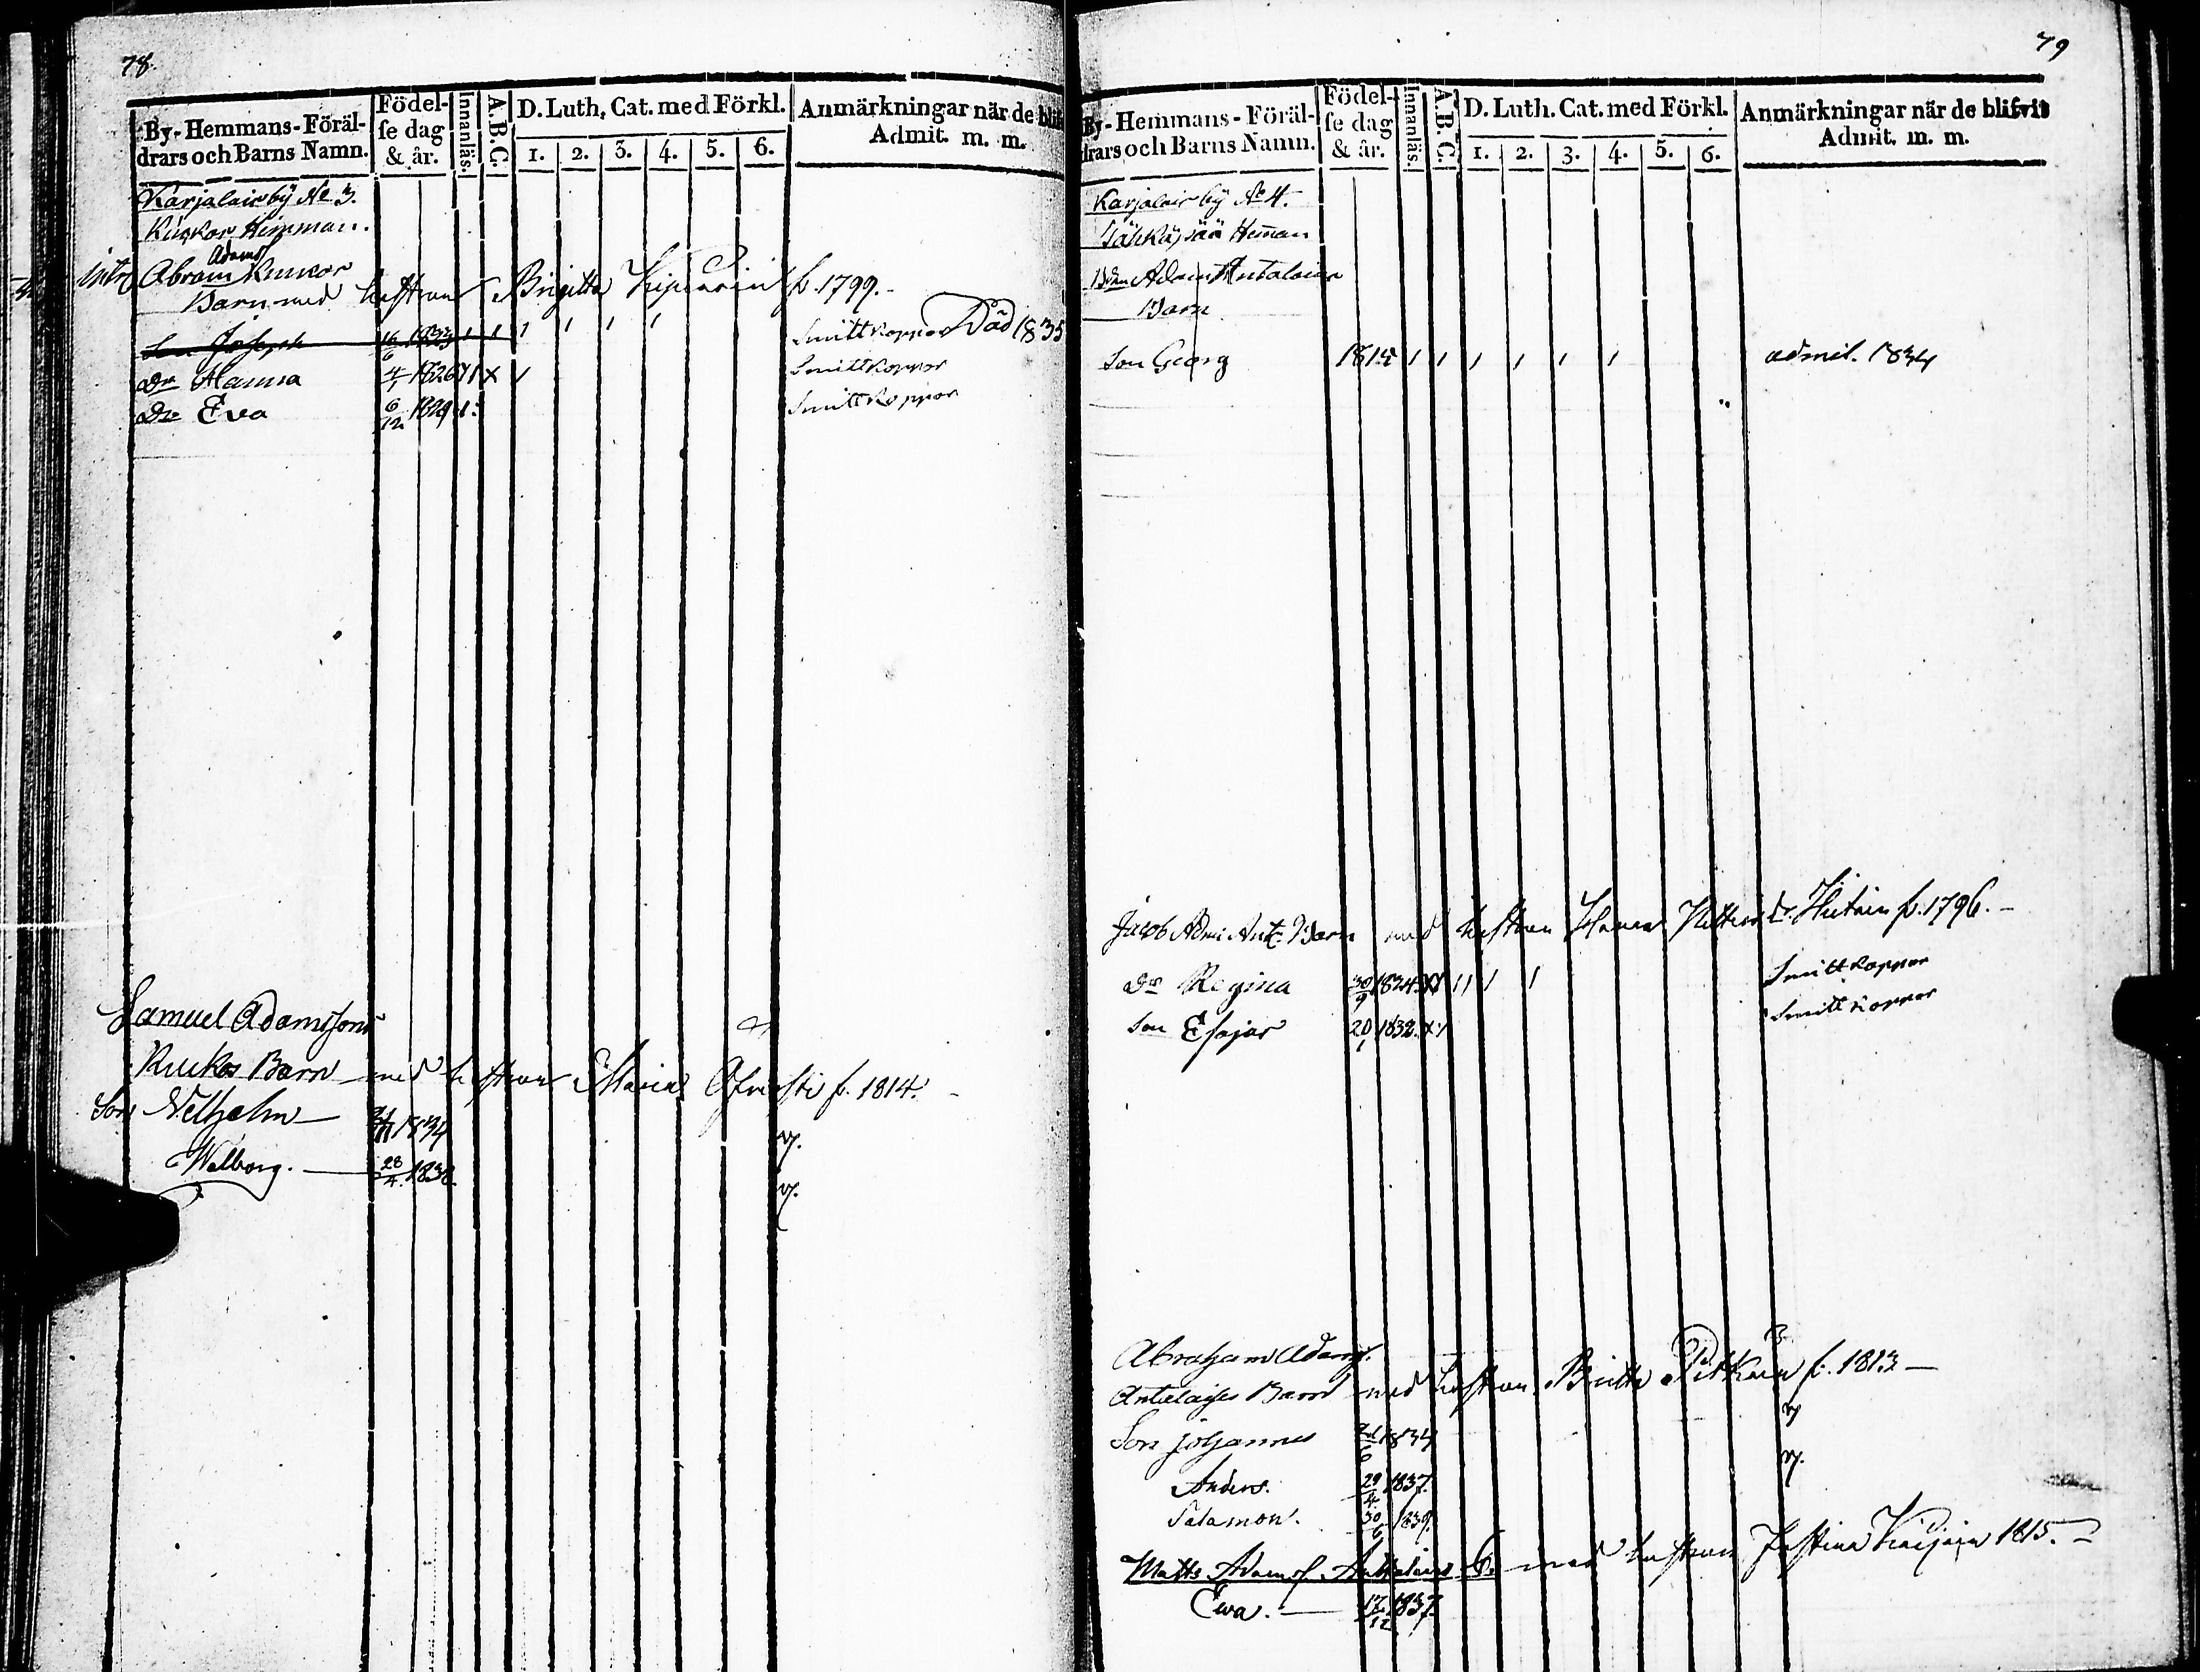 78.
By-Hemmans-Föräl-
drars och Barns Namn.
Födel-
se dag
& år.
Innanläs.
A.B.C.
D. Luth. Cat. med Förkl.
1. 2. 3. 4. 5. 6.
Anmärkningar när de blif
Admit. m. m.
Karjalais bÿ No 3.
Hemman.
Adamsf
Abram
Barn med hustrun Brigitta f. 1799.-
Son Joseph 16/6 1823 1 1 1 1 1 1 Smittkoppor Död 1835
Dr Hanna 4/1 1826 1 1 X 1 Smittkoppor
Dr Eva 6/12 1829 1: Smittkoppor
Samuel Adamssons
Barn med hustrun Maria f. 1814.
Son Vilhelm 1834 v.
Walborg. 28/4 1838 v.
79
By-Hemmans-Föräl-
drars och Barns Namn.
Födel-
se dag
& år.
Innanläs.
A.B.C.
D. Luth. Cat. med Förkl.
1. 2. 3. 4. 5. 6.
Anmärkningar när de blifvit
Admit. m. m.
Karjalais bÿ No 4.
Heman
Adam Antalain
Barn
Son Georg 1815 1 1 1 1 1 1 admit. 1834
Jacob Adms Ant. Barn med hustrun f. 1796.-
Dr Regina 30/9 1824 X1 11 1 1 Smittkoppor
Son Esajas 20/1 1832 X1 Smittkoppor
Abraham Adamsf.
Antalaises Barn med hustrun Britta Pitkän f. 1813-
Son Johannes 1834 v
Anders. 29/4 1837. v.
Salamon. 30/6 1839.
Matts Adamsf. Antalains B. med hustrun Justina 1815.-
Ewa. 17/12 1837.